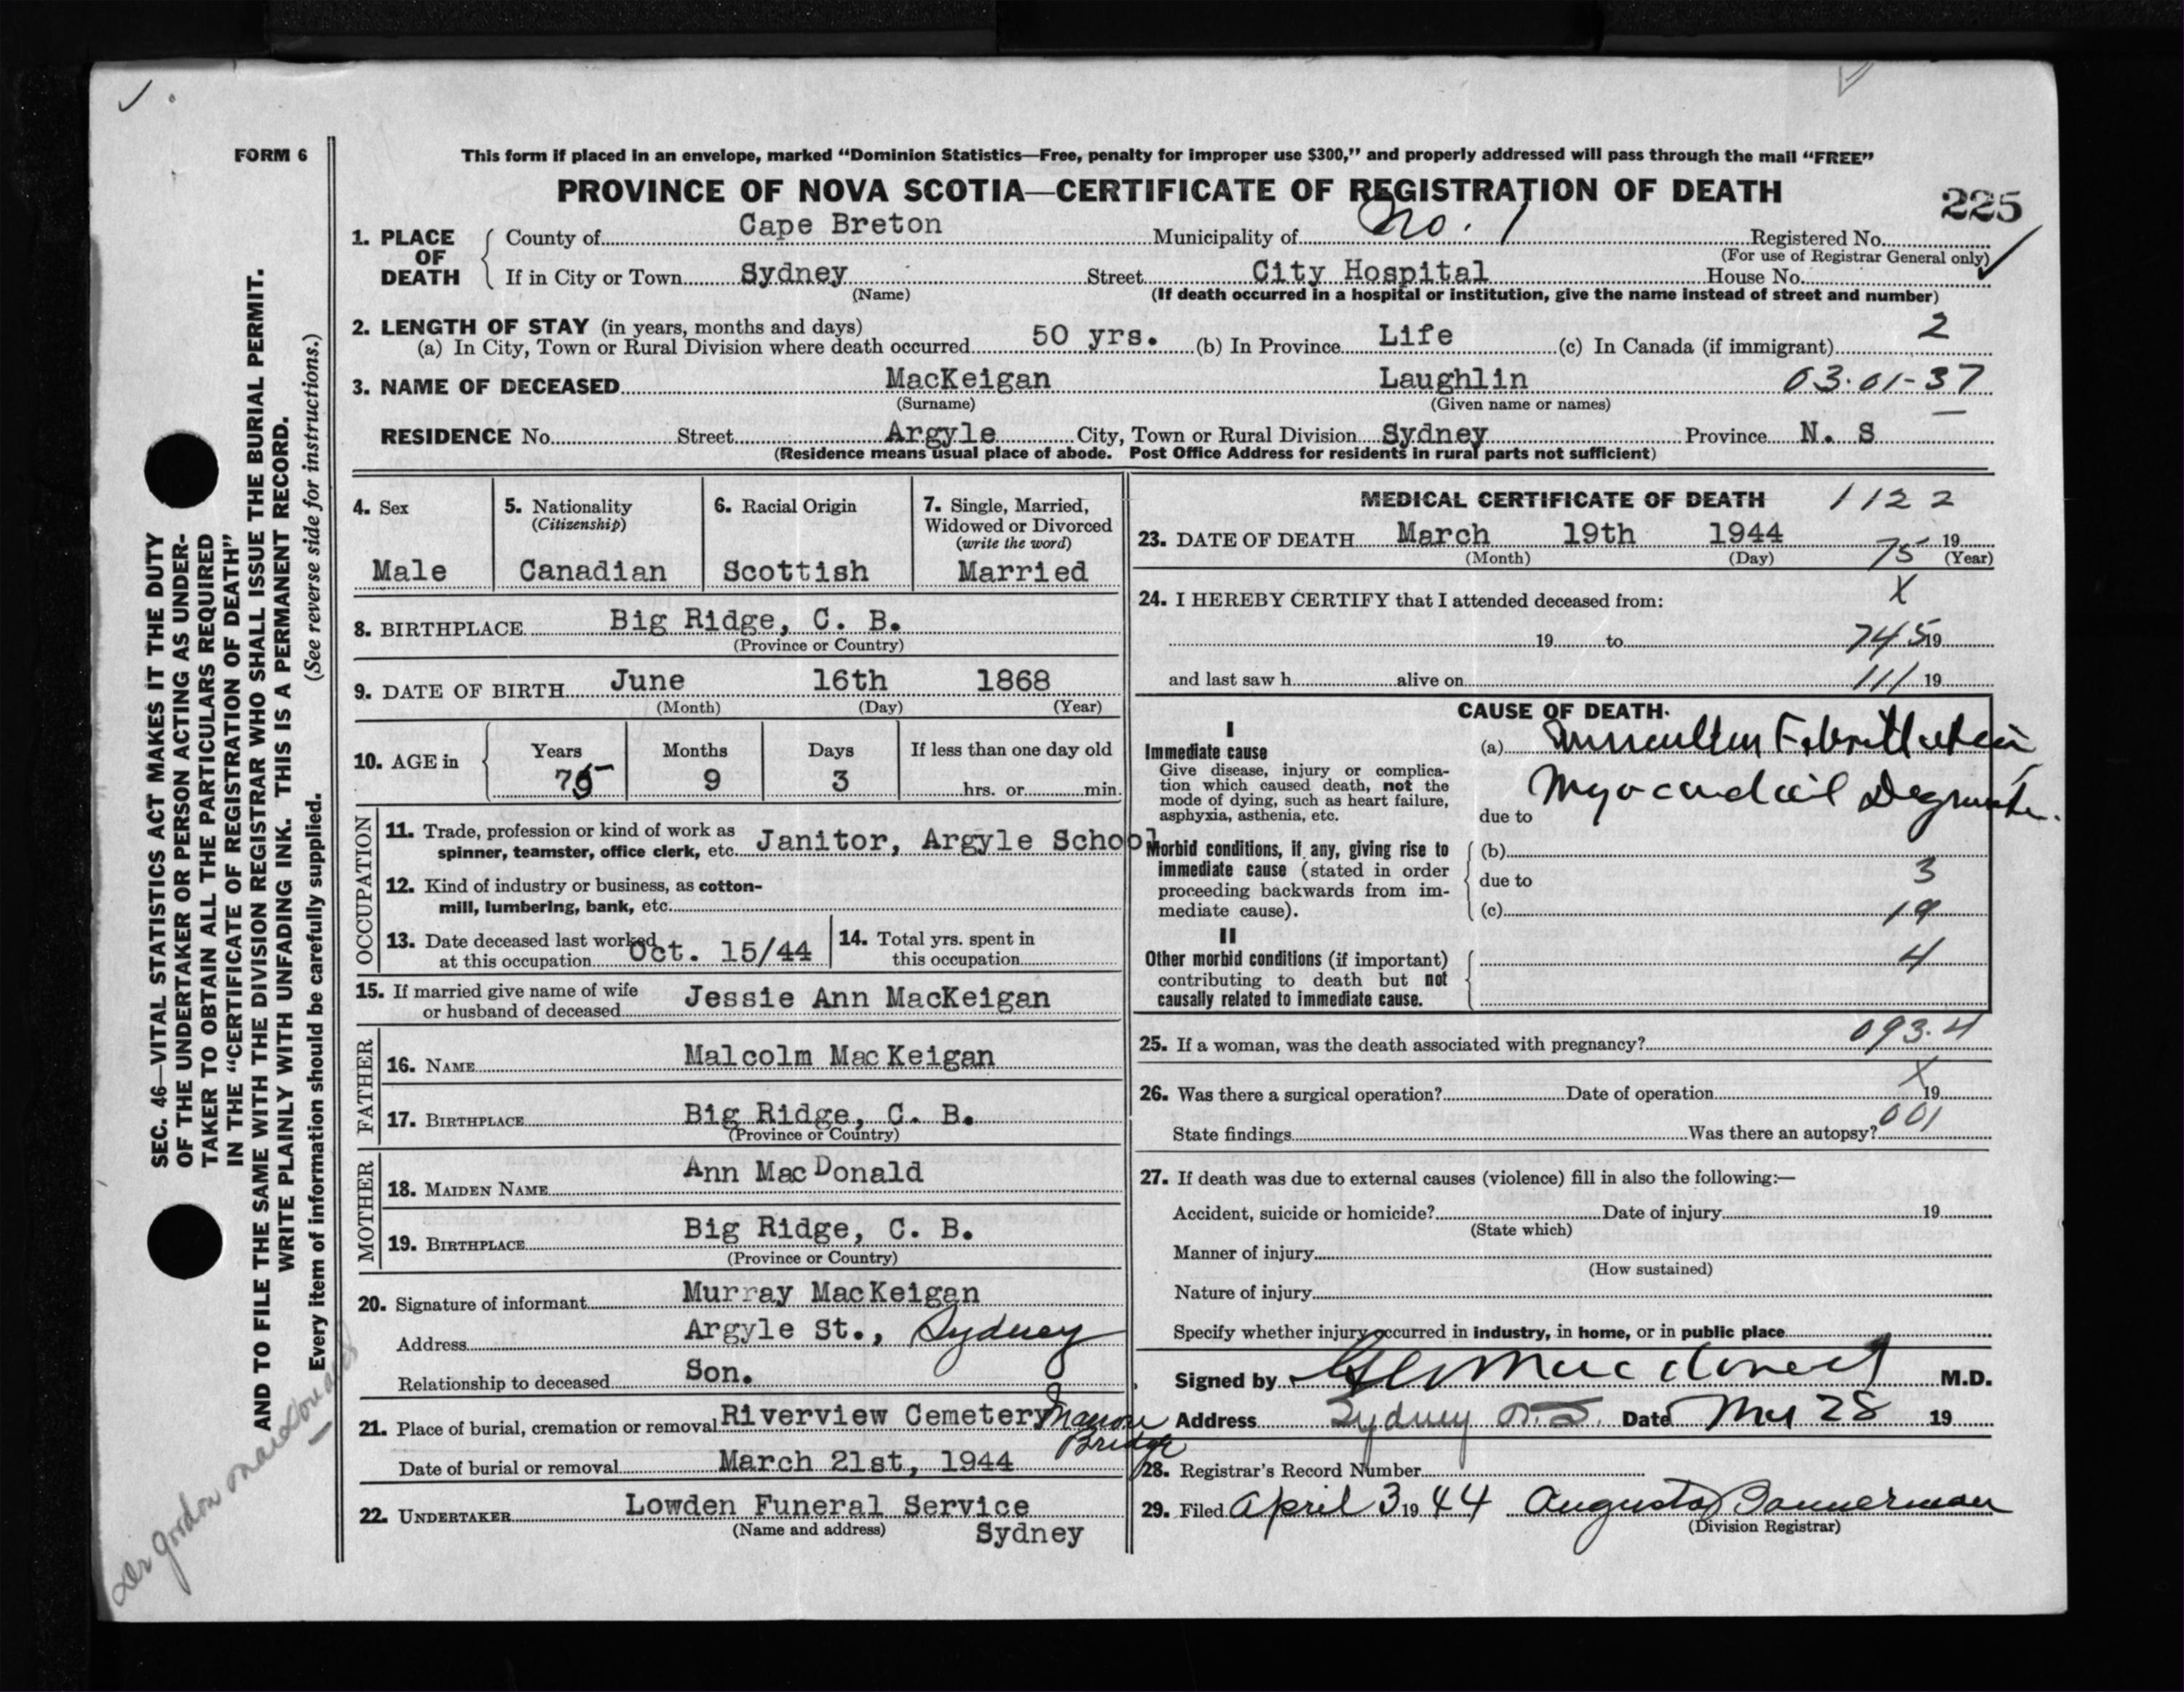 FORM 6
This form if placed in an envelope, marked “Dominion Statistics—Free, penalty for improper use $300,” and properly addressed will pass through the mail “FREE”
PROVINCE OF NOVA SCOTIA—CERTIFICATE OF REGISTRATION OF DEATH
225
1. PLACE OF DEATH
County of Cape Breton Municipality of No. 1 Registered No.
(For use of Registrar General only)
If in City or Town Sydney Street City Hospital House No.
(Name) (If death occurred in a hospital or institution, give the name instead of street and number)
2. LENGTH OF STAY (in years, months and days)
(a) In City, Town or Rural Division where death occurred 50 yrs. (b) In Province Life (c) In Canada (if immigrant) 2
3. NAME OF DECEASED MacKeigan Laughlin 03.01-37
(Surname) (Given name or names)
RESIDENCE No. Street Argyle City, Town or Rural Division Sydney Province N. S
(Residence means usual place of abode. Post Office Address for residents in rural parts not sufficient)
4. Sex
Male
5. Nationality
(Citizenship)
Canadian
6. Racial Origin
Scottish
7. Single, Married,
Widowed or Divorced
(write the word)
Married
8. BIRTHPLACE Big Ridge, C. B.
(Province or Country)
9. DATE OF BIRTH June 16th 1868
(Month) (Day) (Year)
10. AGE in
Years Months Days If less than one day old
75 9 3 hrs. or min.
OCCUPATION
11. Trade, profession or kind of work as
spinner, teamster, office clerk, etc. Janitor, Argyle School
12. Kind of industry or business, as cotton-
mill, lumbering, bank, etc.
13. Date deceased last worked
at this occupation Oct. 15/44
14. Total yrs. spent in
this occupation
15. If married give name of wife
or husband of deceased Jessie Ann MacKeigan
FATHER
16. NAME Malcolm MacKeigan
17. BIRTHPLACE Big Ridge, C. B.
(Province or Country)
MOTHER
18. MAIDEN NAME Ann MacDonald
19. BIRTHPLACE Big Ridge, C. B.
(Province or Country)
20. Signature of informant Murray MacKeigan
Address Argyle St., Sydney
Relationship to deceased Son.
21. Place of burial, cremation or removal Riverview Cemetery
Bridge
Date of burial or removal March 21st, 1944
22. UNDERTAKER Lowden Funeral Service
(Name and address) Sydney
MEDICAL CERTIFICATE OF DEATH 1122
23. DATE OF DEATH March 19th 1944 75 19
(Month) (Day) (Year)
24. I HEREBY CERTIFY that I attended deceased from: X
19 to 745 19
and last saw h alive on 111 19
CAUSE OF DEATH.
I
Immediate cause
Give disease, injury or complica-
tion which caused death, not the
mode of dying, such as heart failure,
asphyxia, asthenia, etc.
(a)
due to Myocardial
Morbid conditions, if any, giving rise to
immediate cause (stated in order
proceeding backwards from im-
mediate cause).
(b)
due to 3
(c) 19
II
Other morbid conditions (if important)
contributing to death but not
causally related to immediate cause.
4
25. If a woman, was the death associated with pregnancy? 093.4
26. Was there a surgical operation? Date of operation X 19
State findings Was there an autopsy? 001
27. If death was due to external causes (violence) fill in also the following:—
Accident, suicide or homicide? Date of injury 19
(State which)
Manner of injury
(How sustained)
Nature of injury
Specify whether injury occurred in industry, in home, or in public place
Signed by M.D.
Address Sydney N.S. Date 28 19
28. Registrar's Record Number
29. Filed April 3 19 44 Augusta Bannerman
(Division Registrar)
SEC. 46—VITAL STATISTICS ACT MAKES IT THE DUTY
OF THE UNDERTAKER OR PERSON ACTING AS UNDER-
TAKER TO OBTAIN ALL THE PARTICULARS REQUIRED
IN THE “CERTIFICATE OF REGISTRATION OF DEATH”
AND TO FILE THE SAME WITH THE DIVISION REGISTRAR WHO SHALL ISSUE THE BURIAL PERMIT.
WRITE PLAINLY WITH UNFADING INK. THIS IS A PERMANENT RECORD.
Every item of information should be carefully supplied. (See reverse side for instructions.)
Dr Gordon MacDonald